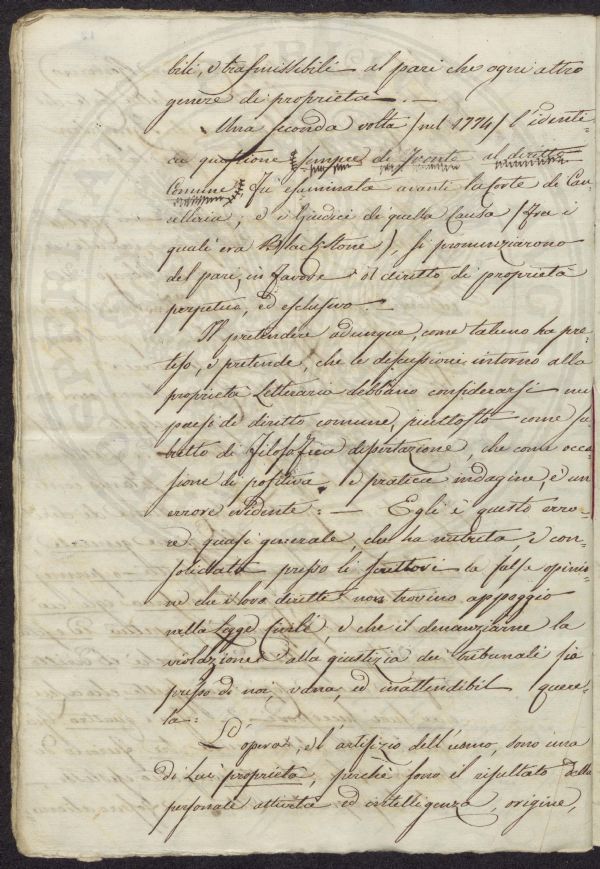 bili, e trasmissibili al pari che ogni altro
genere di proprietà. —
Una seconda volta (nel 1774) l'identi-
ca questione sempre di fronte al diritto
Comune fu esaminata avanti la Corte di Can-
celleria; e i Giudici di questa Causa (fra i
quali era Blackstone), si pronunziarono
del pari, in favore del diritto di proprietà
perpetua, ed esclusiva. —
Il pretendere adunque, come taluno ha pre-
teso, e pretende, che le discussioni intorno alla
proprietà Letteraria debbano considerarsi nei
paesi di diritto comune, piuttosto come su-
bietto di filosofica disputazione, che come occa-
sione di positiva e pratica indagine, è un
errore evidente: — Egli è questo erro-
re quasi generale, che ha nutrita e con-
solidata presso li scrittori la falsa opinio-
ne che i loro diritti non trovino appoggio
nella Legge Civile, e che il denunziarne la
violazione alla giustizia dei tribunali sia
presso di noi, vana, ed inattendibil quere-
la:
L'opera, e l'artifizio dell'uomo, sono una
di Lui proprietà, perchè sono il risultato della
personale attività ed intelligenza, origine,